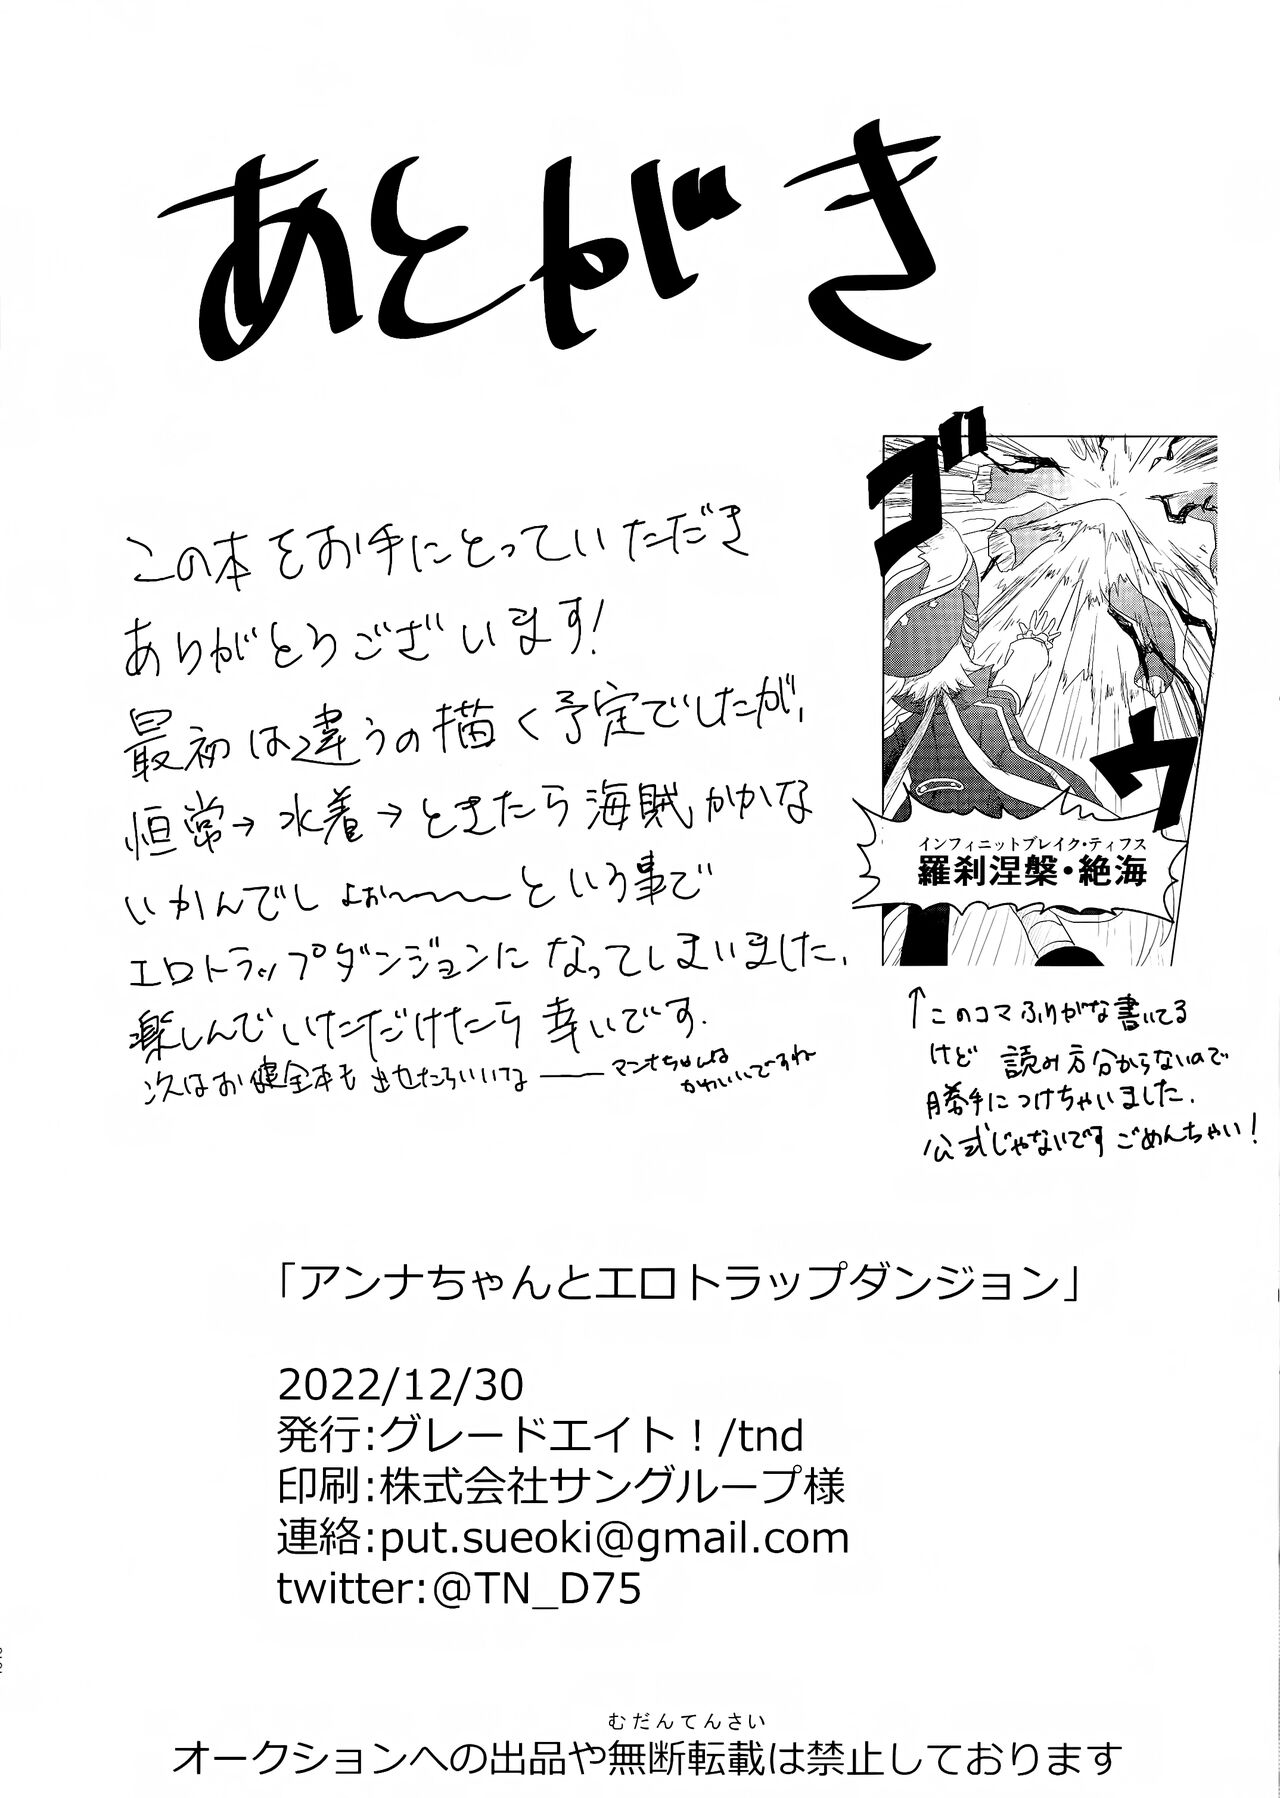 あとがき
この本をお手にとっていただき
ありがとうございます!
最初は違うの描く予定でしたが、
恒常→水着→ときたら海賊かかな
いかんでしょぉ〜〜〜という事で
エロトラップダンジョンになってしまいました.
楽しんでいただけたら幸いです.
次はお健全本も出せたらいいな――マンナちゃんは
かわいいですね
ゴ
ウ
インフィニットブレイク・ティフス
羅刹涅槃・絶海
↑このコマふりがな書いてる
けど 読み方分からないので
勝手につけちゃいました.
公式じゃないです ごめんちゃい!
「アンナちゃんとエロトラップダンジョン」
2022/12/30
発行:グレードエイト！/tnd
印刷:株式会社サングループ様
連絡:put.sueoki@gmail.com
twitter:@TN_D75
むだんてんさい
オークションへの出品や無断転載は禁止しております